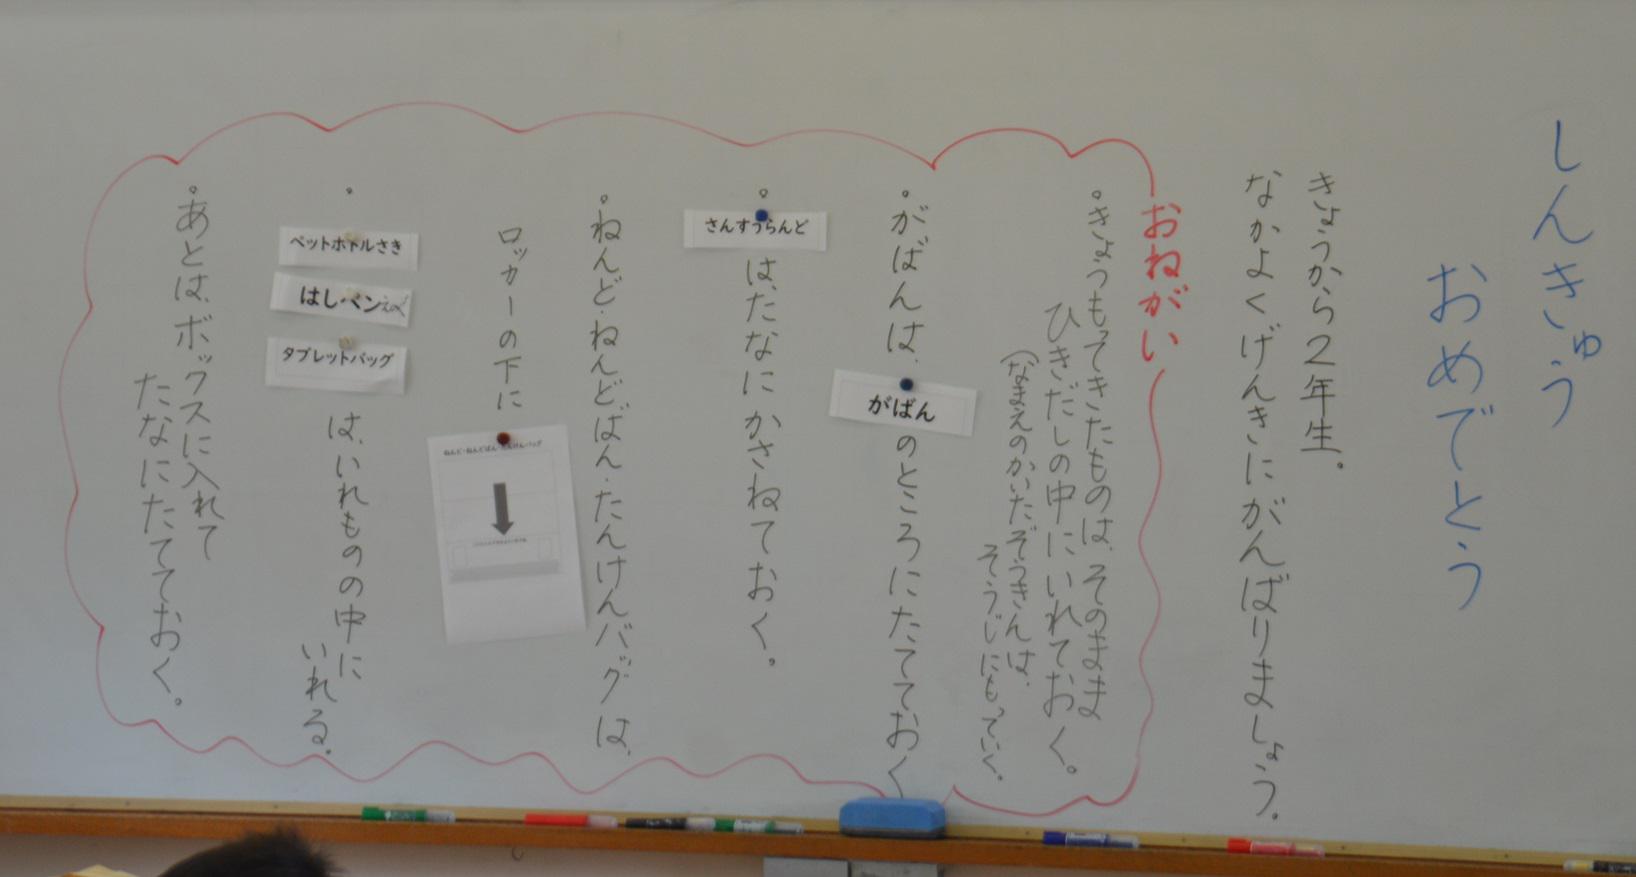 しんきゅう
おめでとう
きょうから2年生。
なかよくげんきにがんばりましょう。
おねがい
。きょうもってきたものは、そのまま
ひきだしの中にいれておく。
(なまえのかいたぞうきんは、
そうじにもっていく。
。がばんは、がばんのところにたてておく
。さんすうらんどは、たなにかさねておく。
。ねんど・ねんどばん・たんけんバッグは、
ロッカーの下に
ねんど・ねんどばん・たんけんバッグ
。ペットボトルさき
はしペン
タブレットバッグ
は、いれものの中に
いれる。
。あとは、ボックスに入れて
たなにたてておく。